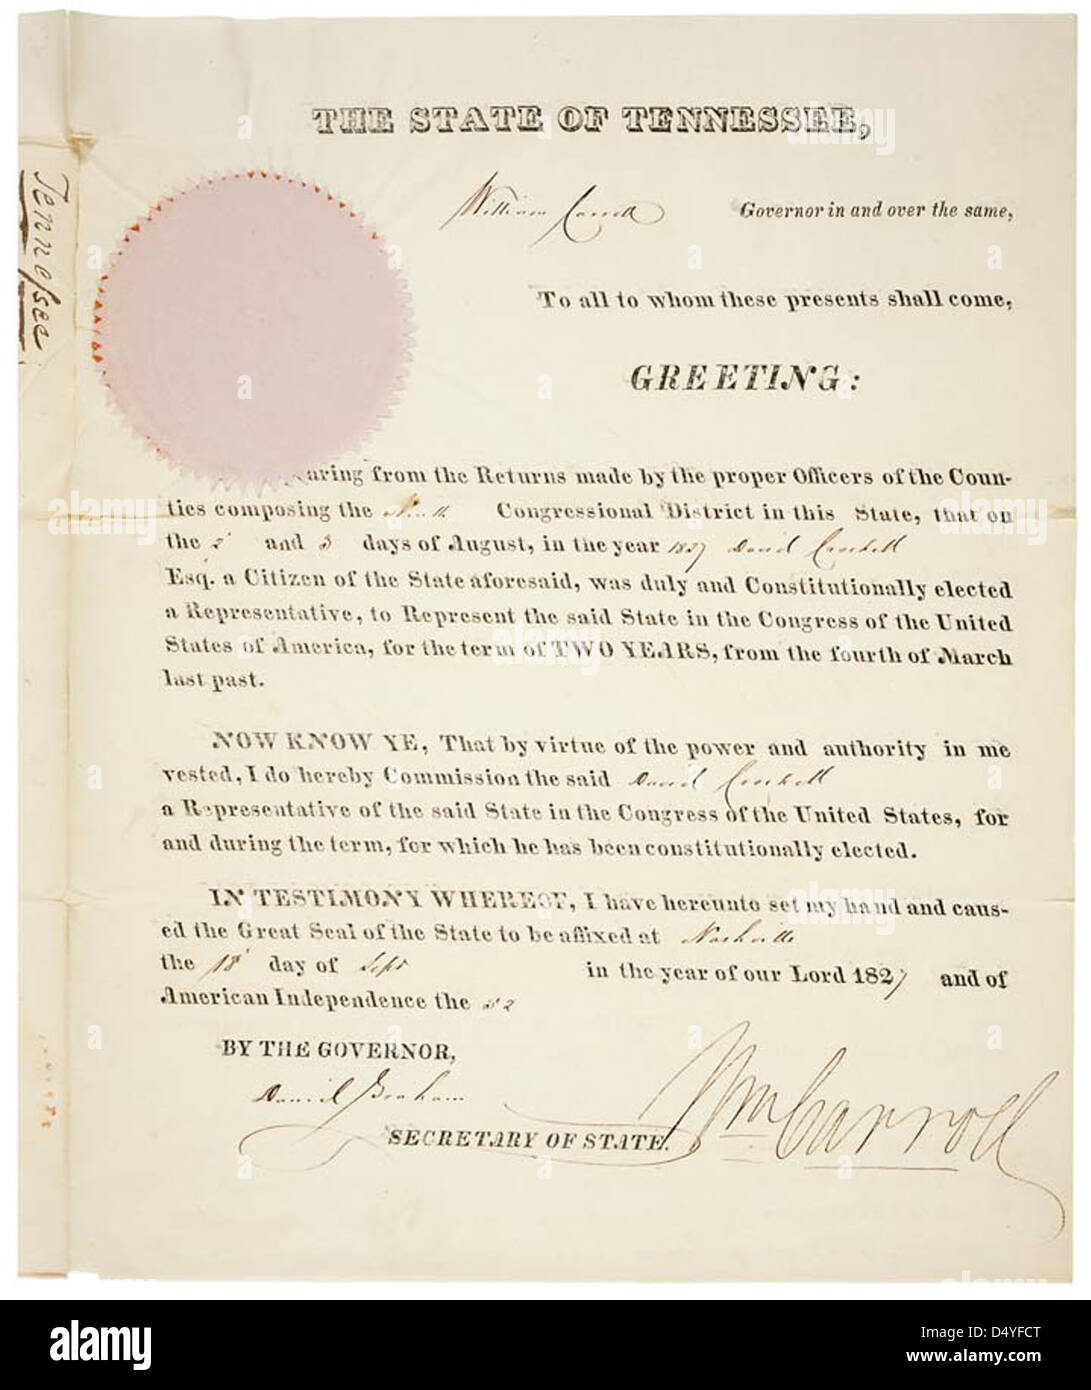 THE STATE OF TENNESSEE,
Tennessee
William Carroll Governor in and over the same,
To all to whom these presents shall come,
GREETING:
aring from the Returns made by the proper Officers of the Coun-
ties composing the Ninth Congressional District in this State, that on
the 2 and 3 days of August, in the year 1827 David Crockett
Esq. a Citizen of the State aforesaid, was duly and Constitutionally elected
a Representative, to Represent the said State in the Congress of the United
States of America, for the term of TWO YEARS, from the fourth of March
last past.
NOW KNOW YE, That by virtue of the power and authority in me
vested, I do hereby Commission the said David Crockett
a Representative of the said State in the Congress of the United States, for
and during the term, for which he has been constitutionally elected.
IN TESTIMONY WHEREOF, I have hereunto set my hand and caus-
ed the Great Seal of the State to be affixed at Nashville
the 18 day of Sept in the year of our Lord 1827 and of
American Independence the 52
BY THE GOVERNOR,
Daniel Graham
SECRETARY OF STATE.
Wm Carroll
alamy
Image ID: D4YFCT
www.alamy.com